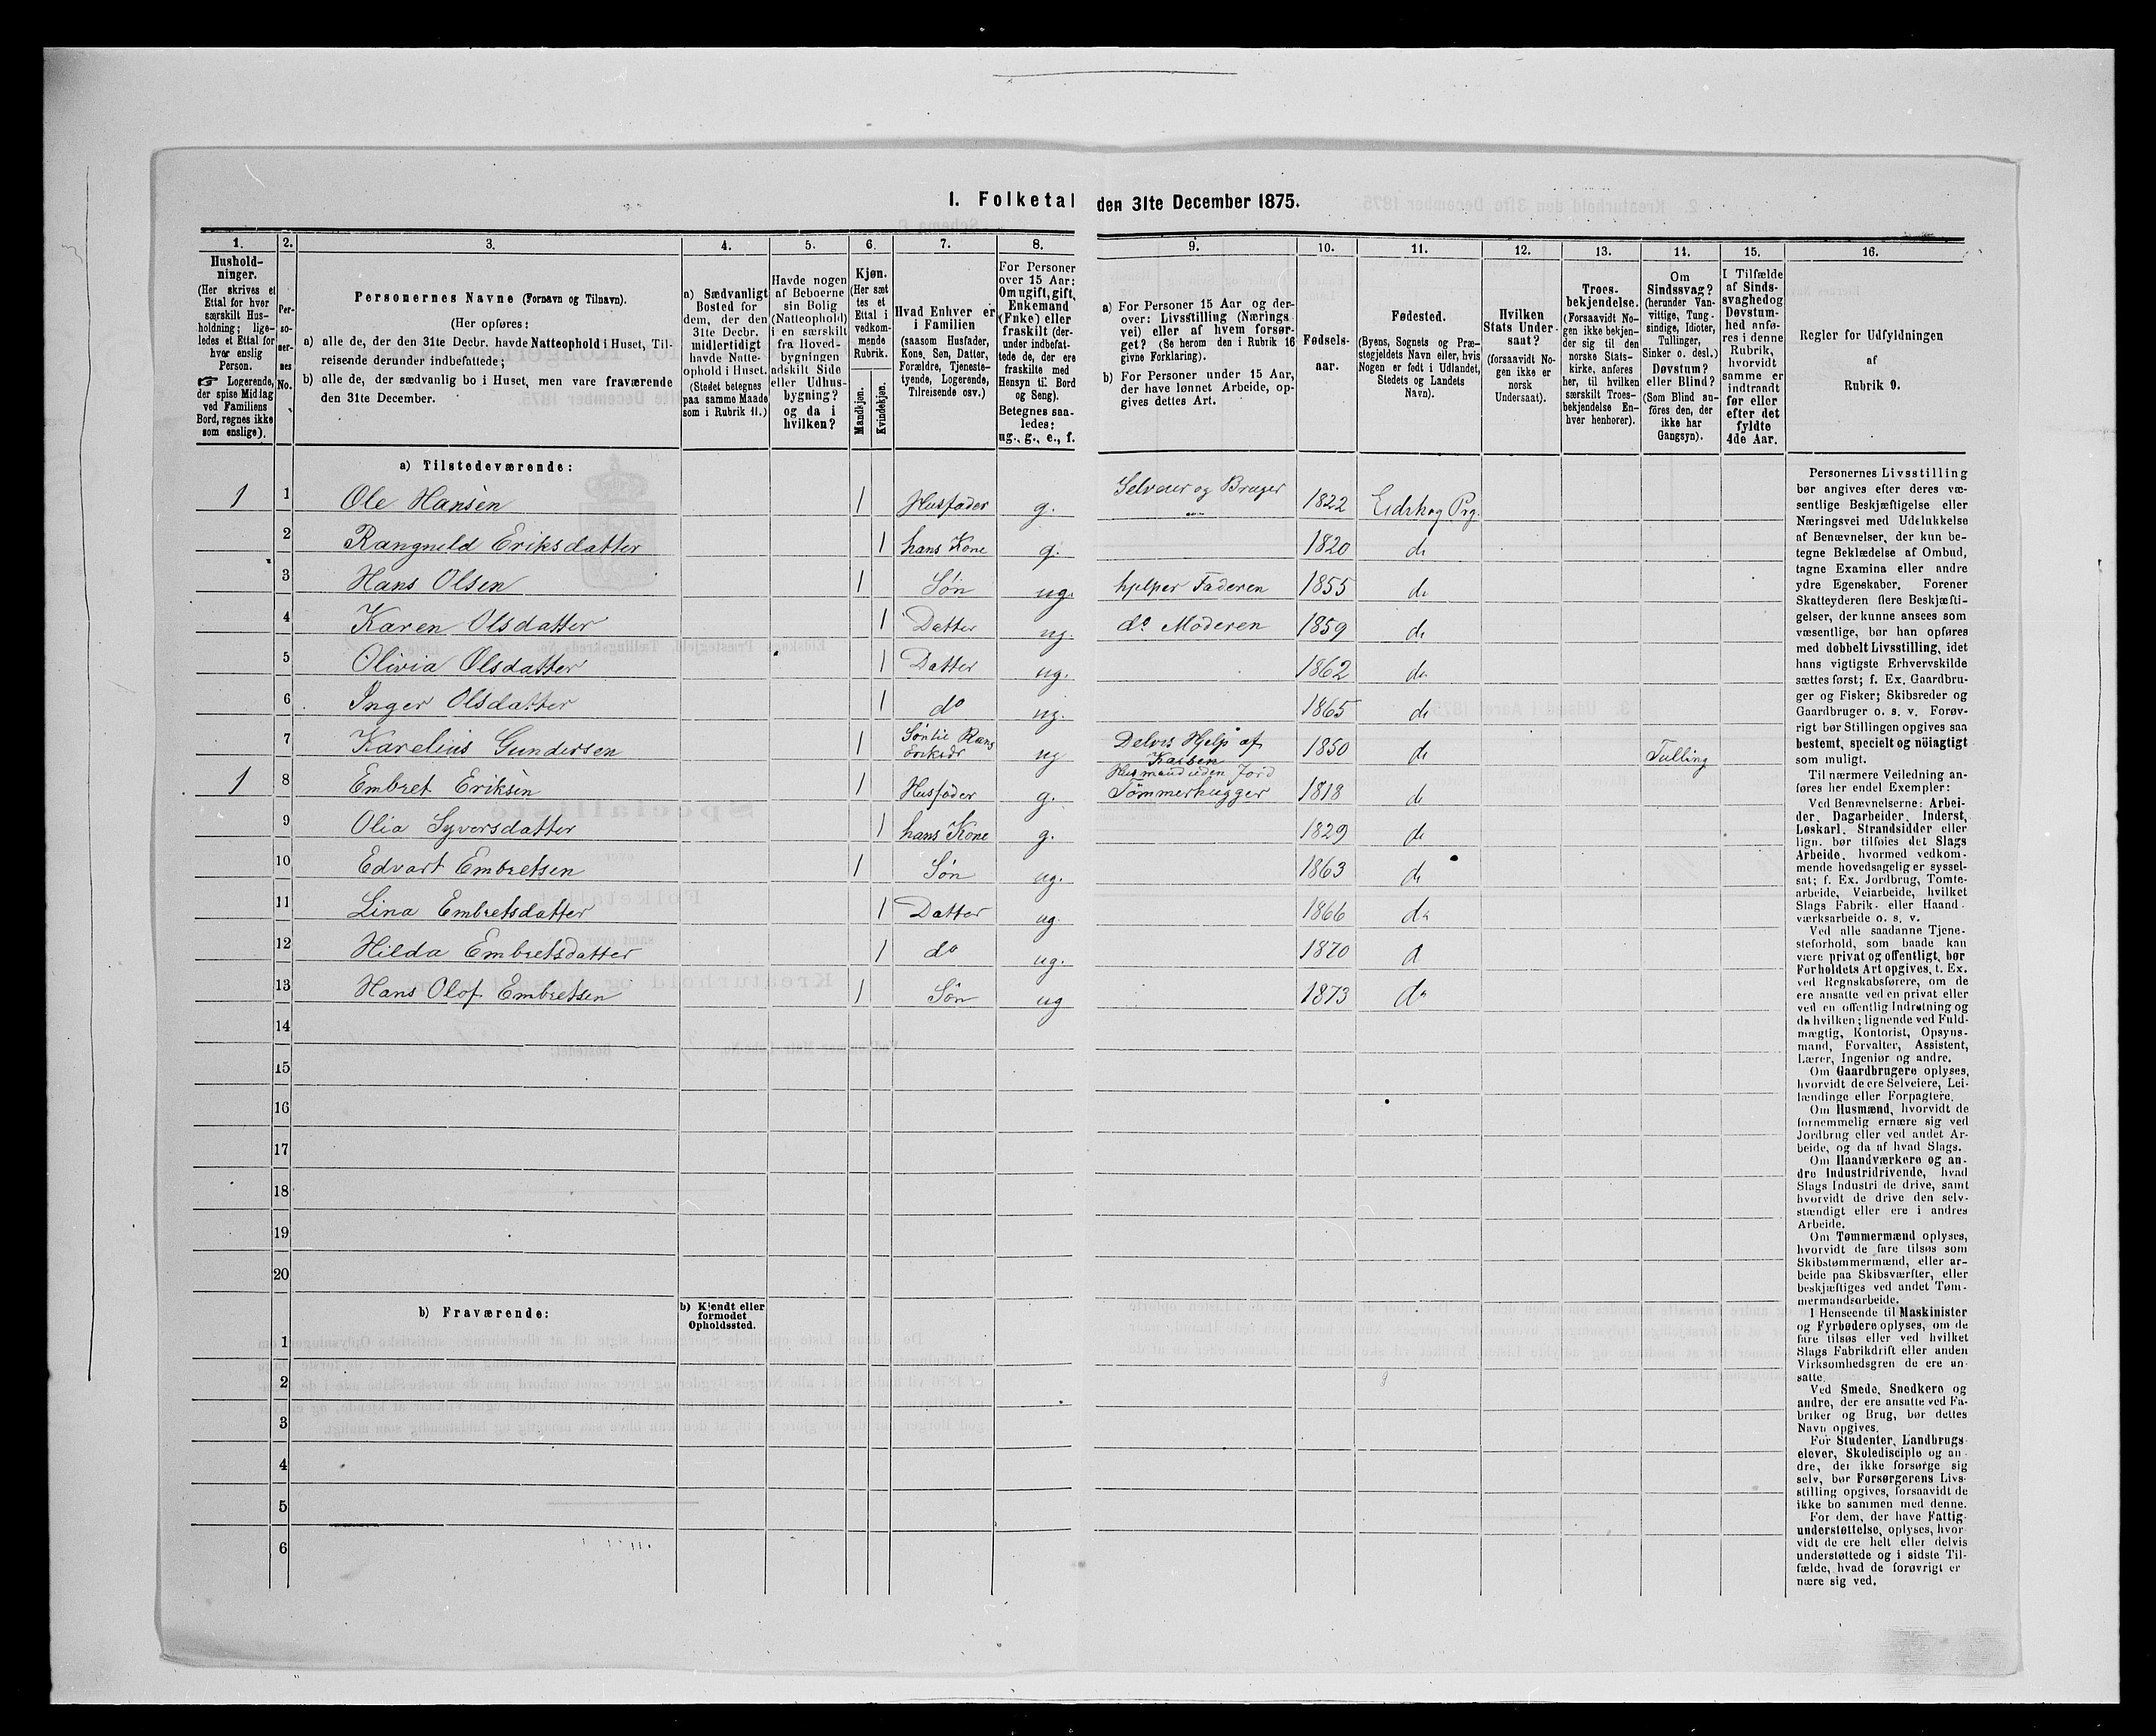 1. Folketal den 31te December 1875.
1.
Hushold-
ninger.
(Her skrives et
Ettal for hver
særskilt Hus-
holdning; lige-
ledes et Ettal for
hver enslig
Person.
☞ Logerende,
der spise Middag
ved Familiens
Bord, regnes ikke
som enslige).
2.
Per-
so-
ner-
nes
No.
3.
Personernes Navne (Fornavn og Tilnavn).
(Her opføres:
a) alle de, der den 31te Decbr. havde Natteophold i Huset, Til-
reisende derunder indbefattede;
b) alle de, der sædvanlig bo i Huset, men vare fraværende
den 31te December.
4.
a) Sædvanligt
Bosted for
dem, der den
31te Decbr.
midlertidigt
havde Natte-
ophold i Huset.
(Stedet betegnes
paa samme Maade
som i Rubrik 11.)
5.
Havde nogen
af Beboerne
sin Bolig
(Natteophold)
i en særskilt
fra Hoved-
bygningen
adskilt Side
eller Udhus-
bygning?
og da i
hvilken?
6.
Kjøn.
(Her sæt
tes et
Ettal i
vedkom-
mende
Rubrik.
Mandkjøn.
Kvindekjøn.
7.
Hvad Enhver er
i Familien
(saasom Husfader,
Kone, Søn, Datter,
Forældre, Tjeneste-
tyende, Logerende,
Tilreisende osv.)
8.
For Personer
over 15 Aar:
Om ugift, gift,
Enkemand
(Enke) eller
fraskilt (der-
under indbefat-
tede de, der ere
fraskilte med
Hensyn til Bord
og Seng).
Betegnes saa-
ledes:
ug., g., e., f.
9.
a) For Personer 15 Aar og der-
over: Livsstilling (Nærings
vei) eller af hvem forsør-
get? (Se herom den i Rubrik 16
givne Forklaring).
b) For Personer under 15 Aar,
der have lønnet Arbeide, op-
gives dettes Art.
10.
Fødsels-
aar.
11.
Fødested.
(Byens, Sognets og Præ-
stegjeldets Navn eller, hvis
Nogen er født i Udlandet,
Stedets og Landets
Navn).
12.
Hvilken
Stats Under-
saat?
(forsaavidt No-
gen ikke er
norsk
Undersaat).
13.
Troes-
bekjendelse.
(Forsaavidt No-
gen ikke bekjen-
der sig til den
norske Stats-
kirke, anføres
her, til hvilken
særskilt Troes-
bekjendelse En-
hver henhører).
14.
Om
Sindssvag?
(herunder Van-
vittige, Tung-
sindige, Idioter,
Tullinger,
Sinker o. desl.)
Døvstum?
eller Blind?
(Som Blind an-
føres den, der
ikke har
Gangsyn).
15.
I Tilfælde
af Sinds-
svaghed og
Døvstum-
hed anfø-
res i denne
Rubrik,
hvorvidt
samme er
indtraadt
før eller
efter det
fyldte
4de Aar.
16.
Regler for Udfyldningen
af
Rubrik 9.
a) Tilstedeværende:
1 1 Ole Hansen 1 Husfader g. Selveier og Bruger 1822 Eidskog Prg.
2 Rangneld Eriksdatter 1 hans Kone g. 1820 do
3 Hans Olsen 1 Søn ug. hjelper Faderen 1855 do
4 Karen Olsdatter 1 Datter ug. do Moderen 1859 do
5 Olivia Olsdatter 1 Datter ug. 1862 do
6 Inger Olsdatter 1 do ug. 1865 do
7 Karelius Gundersen 1 Søn til Rans Eriksdr ug Delvis Hjelp af Kassen 1850 do Tulling
1 8 Embret Eriksen 1 Husfader g. Husmand uden Jord Tømmerhugger 1818 do
9 Olia Syversdatter 1 hans Kone g. 1829 do
10 Edvart Embretsen 1 Søn ug. 1863 do
11 Lina Embretsdatter 1 Datter ug 1866 do
12 Hilda Embretsdatter 1 do ug. 1870 d
13 Hans Olof Embretsen 1 Søn ug 1873 do
14
15
16
17
18
19
20
b) Fraværende:
b) Kjendt eller
formodet
Opholdssted.
1
2
3
4
5
6
Personernes Livsstilling
bør angives efter deres væ-
sentlige Beskjæftigelse eller
Næringsvei med Udelukkelse
af Benævnelser, der kun be-
tegne Beklædelse af Ombud,
tagne Examina eller andre
ydre Egenskaber. Forener
Skatteyderen flere Beskjæfti-
gelser, der kunne ansees som
væsentlige, bør han opføres
med dobbelt Livsstilling, idet
hans vigtigste Erhvervskilde
sættes først; f. Ex. Gaardbru-
ger og Fisker; Skibsreder og
Gaardbruger o. s. v. Forøv-
rigt bør Stillingen opgives saa
bestemt, specielt og nöiagtigt
som muligt.
Til nærmere Veiledning an-
føres her endel Exempler:
Ved Benævnelserne: Arbei-
der, Dagarbeider, Inderst,
Løskarl, Strandsidder eller
lign. bør tilføies det Slags
Arbeide, hvormed vedkom-
mende hovedsagelig er syssel-
sat; f. Ex. Jordbrug, Tomte-
arbeide, Veiarbeide, hvilket
Slags Fabrik- eller Haand-
værksarbeide o. s. v.
Ved alle saadanne Tjene-
steforhold, som baade kan
være privat og offentligt, bør
Forholdets Art opgives, t. Ex.
ved Regnskabsførere, om de
ere ansatte ved en privat eller
ved en offentlig Indretning og
da hvilken; lignende ved Fuld-
mægtig, Kontorist, Opsyns-
mand, Forvalter, Assistent,
Lærer, Ingeniør og andre.
Om Gaardbrugere oplyses,
hvorvidt de ere Selveiere, Lei-
lændinge eller Forpagtere.
Om Husmænd, hvorvidt de
fornemmelig ernære sig ved
Jordbrug eller ved andet Ar-
beide, og da af hvad Slags.
Om Haandværkere og an-
dre Industridrivende, hvad
Slags Industri de drive, samt
hvorvidt de drive den selv-
stændigt eller ere i andres
Arbeide.
Om Tømmermænd oplyses,
hvorvidt de fare tilsøs som
Skibstømmermænd, eller ar-
beide paa Skibsværfter, eller
beskjæftiges ved andet Tøm-
mermandsarbeide.
I Henseende til Maskinister
og Fyrbødere oplyses, om de
fare tilsøs eller ved hvilket
Slags Fabrikdrift eller anden
Virksomhedsgren de ere an-
satte.
Ved Smede, Snedkere og
andre, der ere ansatte ved Fa-
briker og Brug, bør dettes
Navn opgives.
For Studenter, Landbrugs-
elever, Skoledisciple og an-
dre, der ikke forsørge sig
selv, bør Forsørgerens Livs-
stilling opgives, forsaavidt de
ikke bo sammen med denne.
For dem, der have Fattig-
understøttelse, oplyses, hvor-
vidt de ere helt eller delvis
understøttede og i sidste Til-
fælde, hvad de forøvrigt er
nære sig ved.